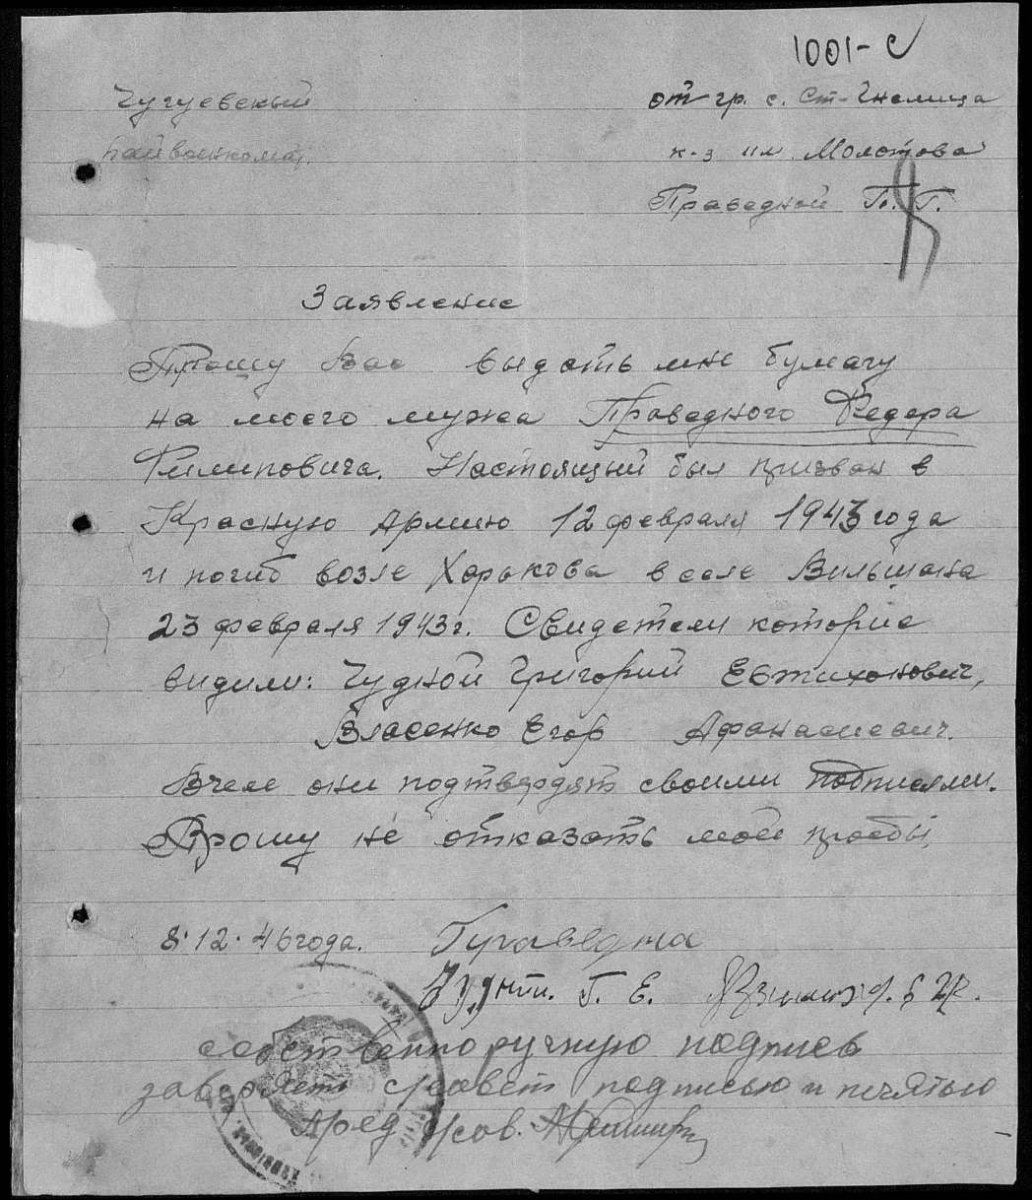 1001-с
Чугуевский
райвоенкомат.
от гр. с. Ст-Гнелица
к-з им. Молотова
Праведной П. Г.
Заявление
Прошу Вас выдать мне бумагу
на моего мужа Праведного Федора
Филиповича. Настоящий был призван в
Красную Армию 12 февраля 1943 года
и погиб возле Харькова в селе Вильшана
23 февраля 1943 г. Свидетели которие
видили: Чудной Григорий Евтихонович,
Власенко Егор Афанасиевич.
они подтвердят своими подписями.
Прошу не отказать моей прозбы,
8.12.46 года. Праведна
Г. Е.
собственноручную подпись
заверяет с/совет подписью и печятью
Пред с/сов.